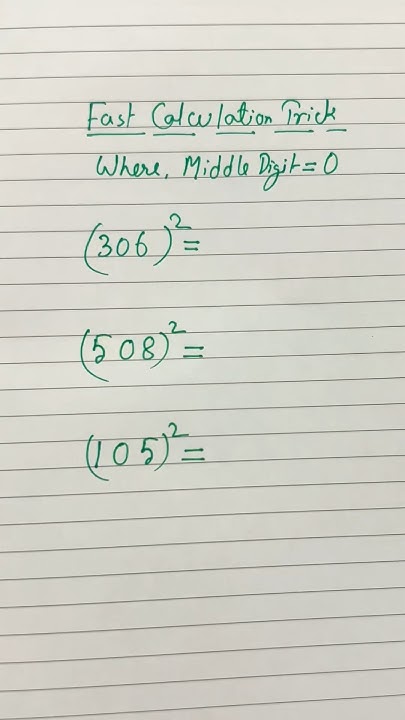 Fast Calculation Trick
Where, Middle Digit = 0
(306)² =
(508)² =
(105)² =